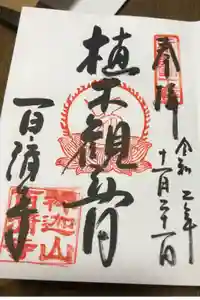 奉拝
令和二年
十一月二十一日
植木觀音
百済寺
釈迦山
百済寺